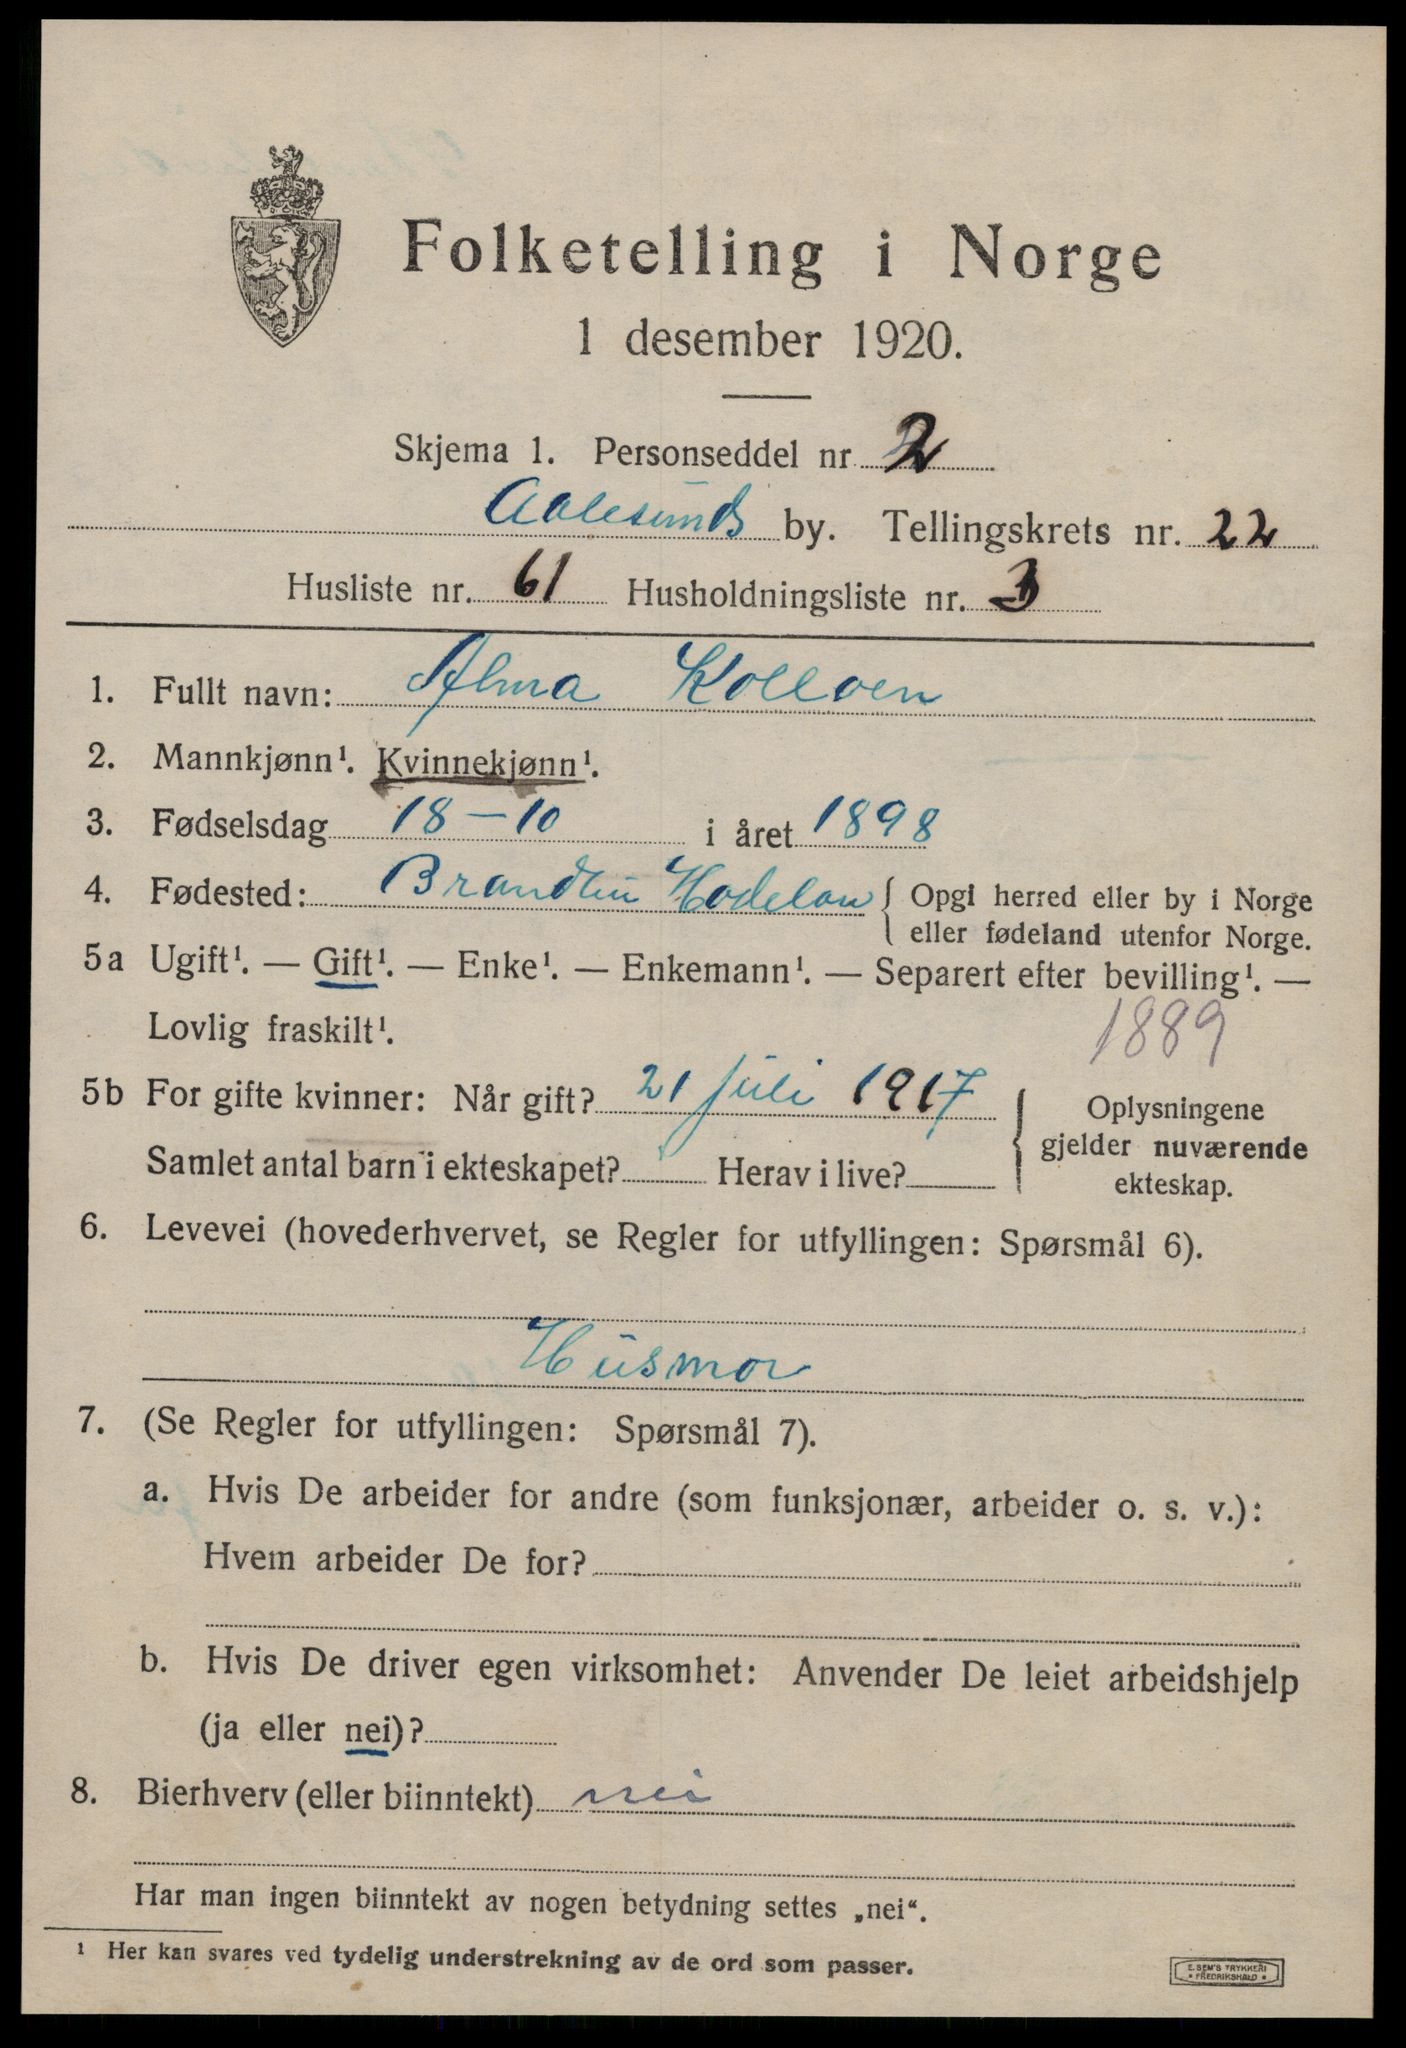 Folketelling i Norge
1 desember 1920.
Skjema 1. Personseddel nr 2
Aalesunds by. Tellingskrets nr. 22
Husliste nr. 61 Husholdningsliste nr. 3
1. Fullt navn: Alma Kolloen
2. Mannkjønn¹. Kvinnekjønn¹.
3. Fødselsdag 18-10 i året 1898
4. Fødested: { Opgi herred eller by i Norge
eller fødeland utenfor Norge.
5a Ugift¹. — Gift¹. — Enke¹. — Enkemann¹. — Separert efter bevilling¹. —
Lovlig fraskilt¹.
1889
5b For gifte kvinner: Når gift? 21 juli 1917 { Oplysningene
gjelder nuværende
ekteskap.
Samlet antal barn i ekteskapet? Herav i live?
6. Levevei (hovederhvervet, se Regler for utfyllingen: Spørsmål 6).
Husmor
7. (Se Regler for utfyllingen: Spørsmål 7).
a. Hvis De arbeider for andre (som funksjonær, arbeider o. s. v.):
Hvem arbeider De for?
b. Hvis De driver egen virksomhet: Anvender De leiet arbeidshjelp
(ja eller nei)?
8. Bierhverv (eller biinntekt) nei
Har man ingen biinntekt av nogen betydning settes „nei“.
¹ Her kan svares ved tydelig understrekning av de ord som passer.
E. SEM'S TRYKKERI
• FREDRIKSHALD •